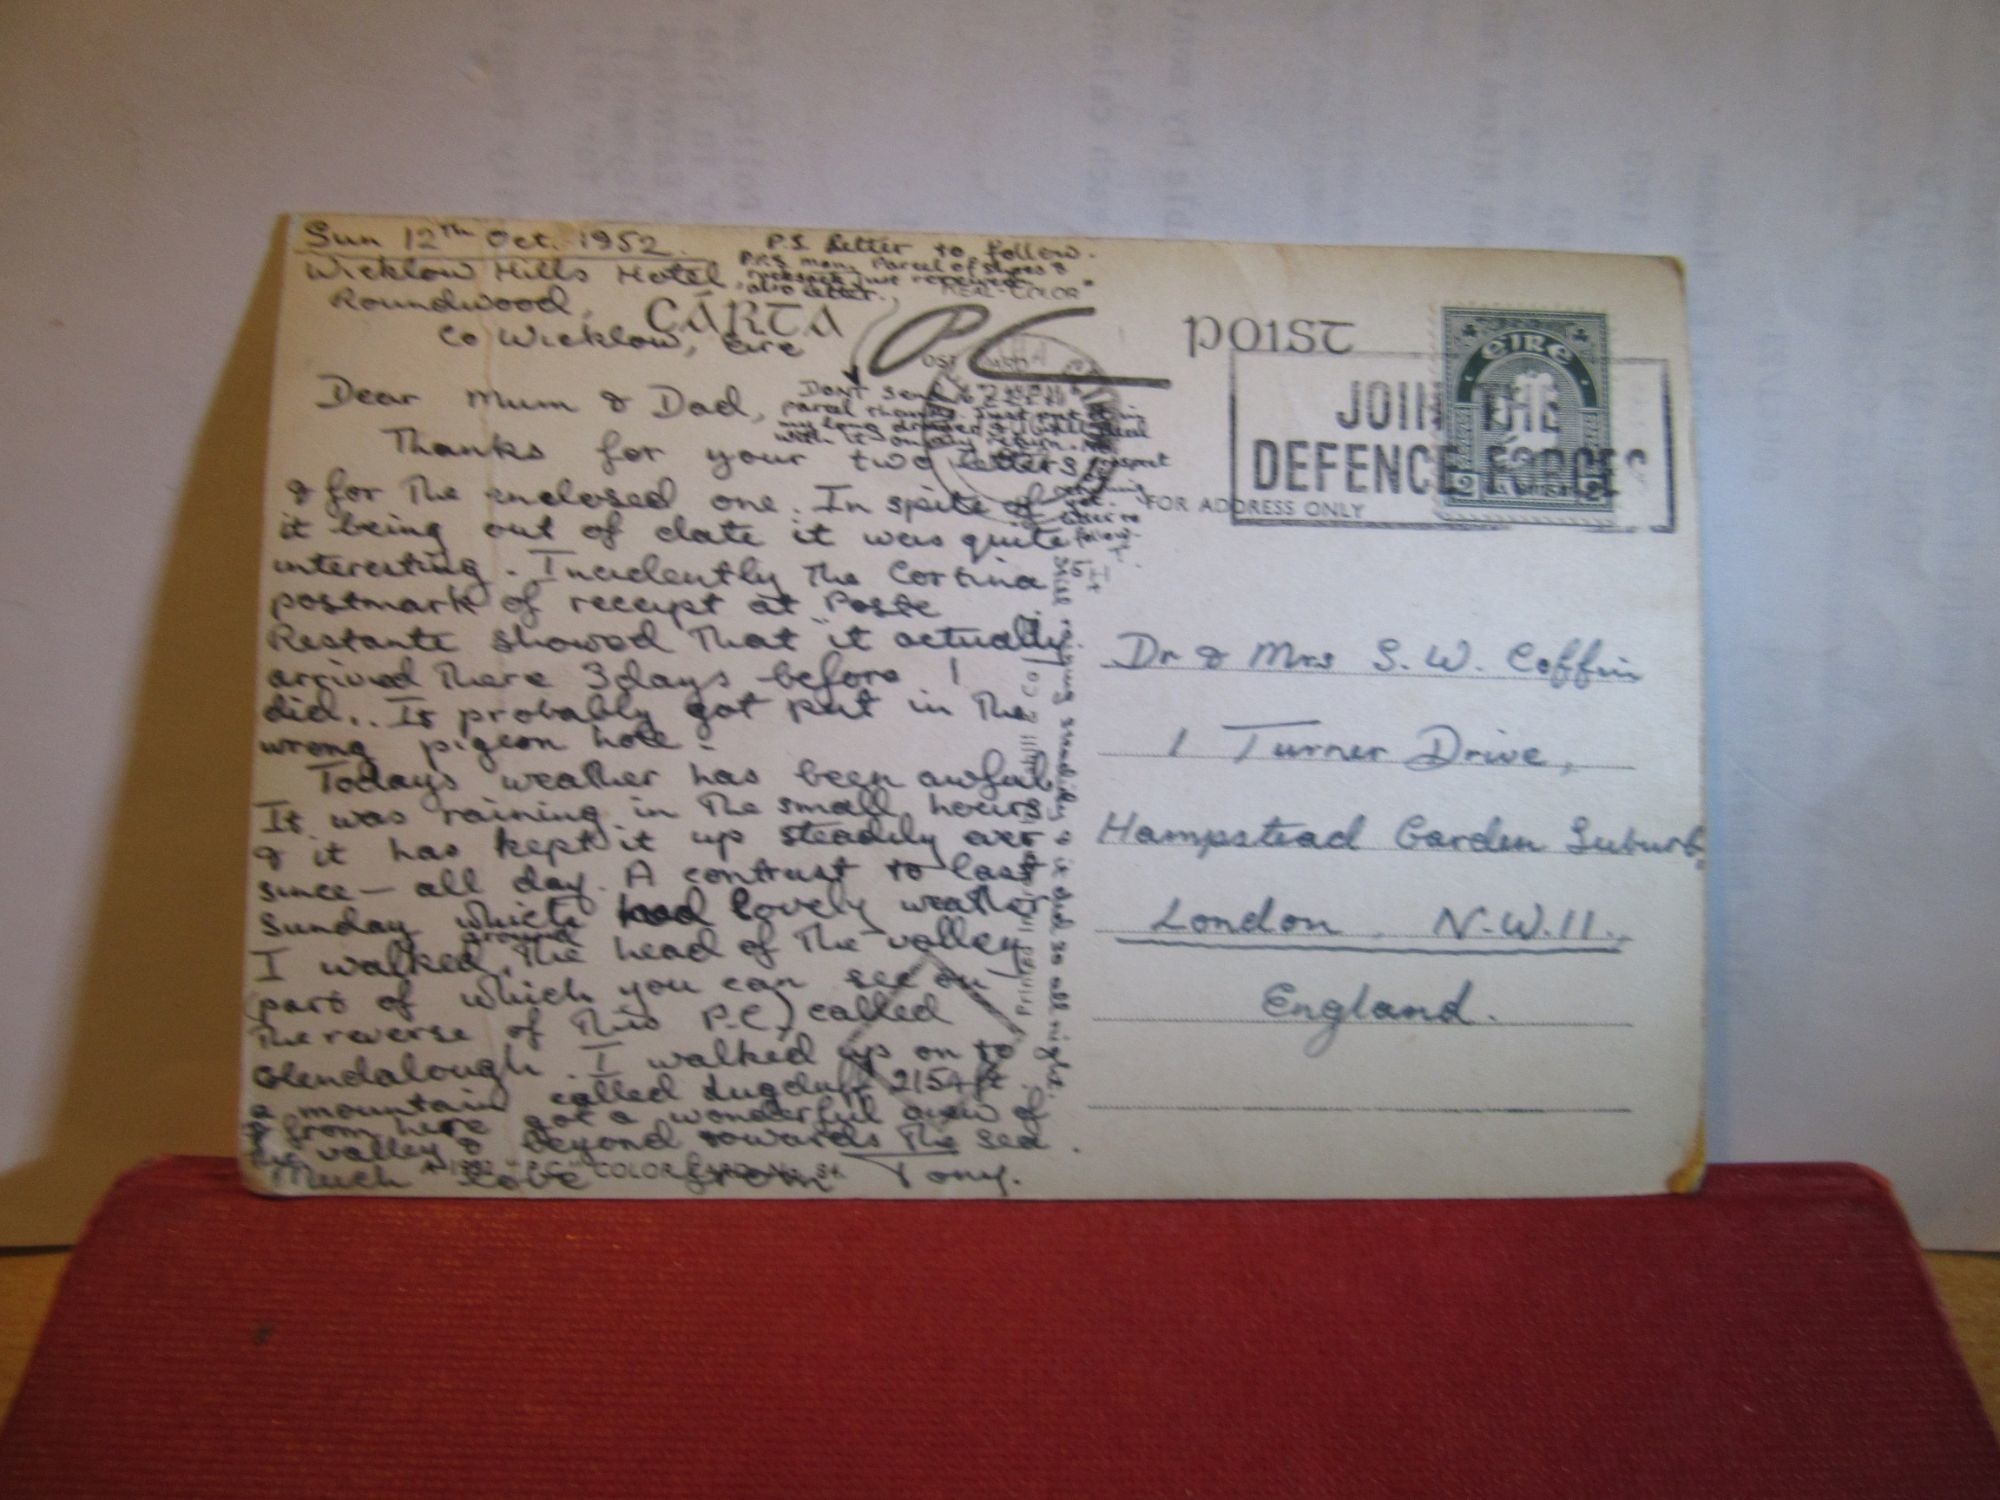 Sun 12Th Oct. 1952.
Wicklow Hills Hotel,
Roundwood,
Co Wicklow, Eire
P.S. Letter to follow.
P.P.S. Mon. Parcel of shoes &
rucksack just received
also letter.
"REAL-COLOR"
CÁRTA
PC
POIST
POST CARD
ÉIRE
JOIN THE
DEFENCE FORCES
FOR ADDRESS ONLY
Dear Mum & Dad,
Don't send
parcel though. Just put it in
my long drawer & I will deal
with it on my return.
Letter to
follow.
T.
Thanks for your two letters
& for The enclosed one. In spite of
it being out of date it was quite
interesting. Incidently The Cortina
postmark of receipt at Poste
Restante showed That it actually
arrived There 3 days before I
did.. It probably got put in The
wrong pigeon hole.
Todays weather has been awful.
It was raining in The small hours
& it has kept it up steadily ever
since — all day. A contrast to last
Sunday which had lovely weather
I walked around The head of The valley
(part of which you can see on
The reverse of This P.C.) called
Glendalough. I walked up on to
a mountain called Lugduff 2154 ft.
& from here got a wonderful view of
The valley & beyond towards The sea.
Much Love from Tony.
steadily & it did so all night.
Dr & Mrs S. W. Coffin
1 Turner Drive,
Hampstead Garden Suburb,
London, N.W.11.,
England.